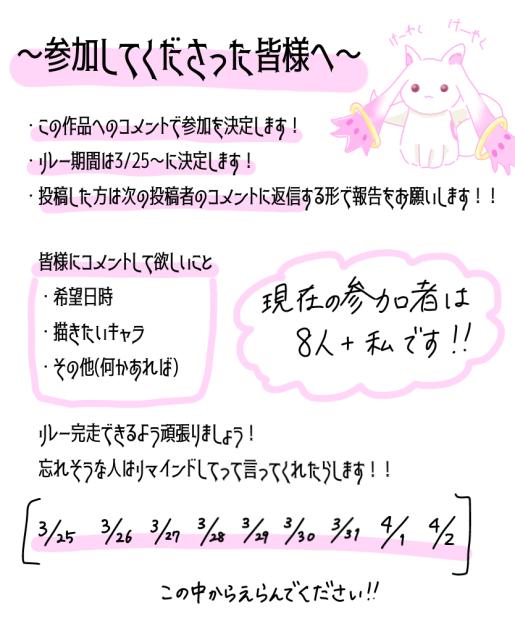 けーやく けーやく
～参加してくださった皆様へ～
・この作品へのコメントで参加を決定します！
・リレー期間は3/25～に決定します！
・投稿した方は次の投稿者のコメントに返信する形で報告をお願いします！！
皆様にコメントして欲しいこと
・希望日時
・描きたいキャラ
・その他(何かあれば)
現在の参加者は
8人+私です!!
リレー完走できるよう頑張りましょう！
忘れそうな人はリマインドしてって言ってくれたらします！！
[3/25 3/26 3/27 3/28 3/29 3/30 3/31 4/1 4/2]
この中からえらんでください!!